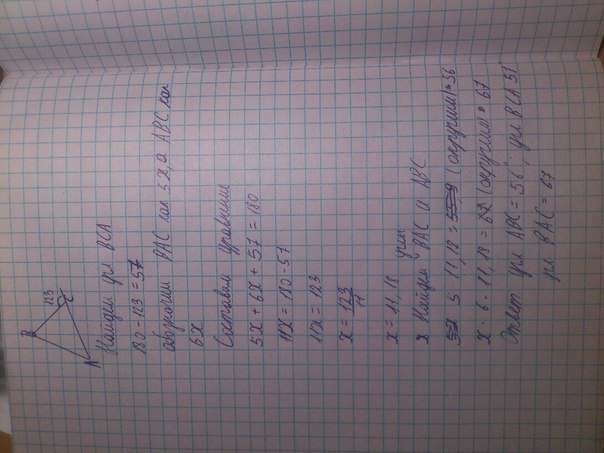 B
123
A
C
Найдём угл BCA
180 - 123 = 57
обозначим BAC как 5x, а ABC как
6x
Составим уравнение
5x + 6x + 57 = 180
11x = 180 - 57
11x = 123
x = 123/11
x = 11,18
Найдём углы BAC и ABC
5 · 11,18 = (округлим) ≈ 56
x · 6 · 11,18 = 67 (округлим) ≈ 67
Ответ угл ABC = 56°; угл BCA 57°
угл BAC = 67